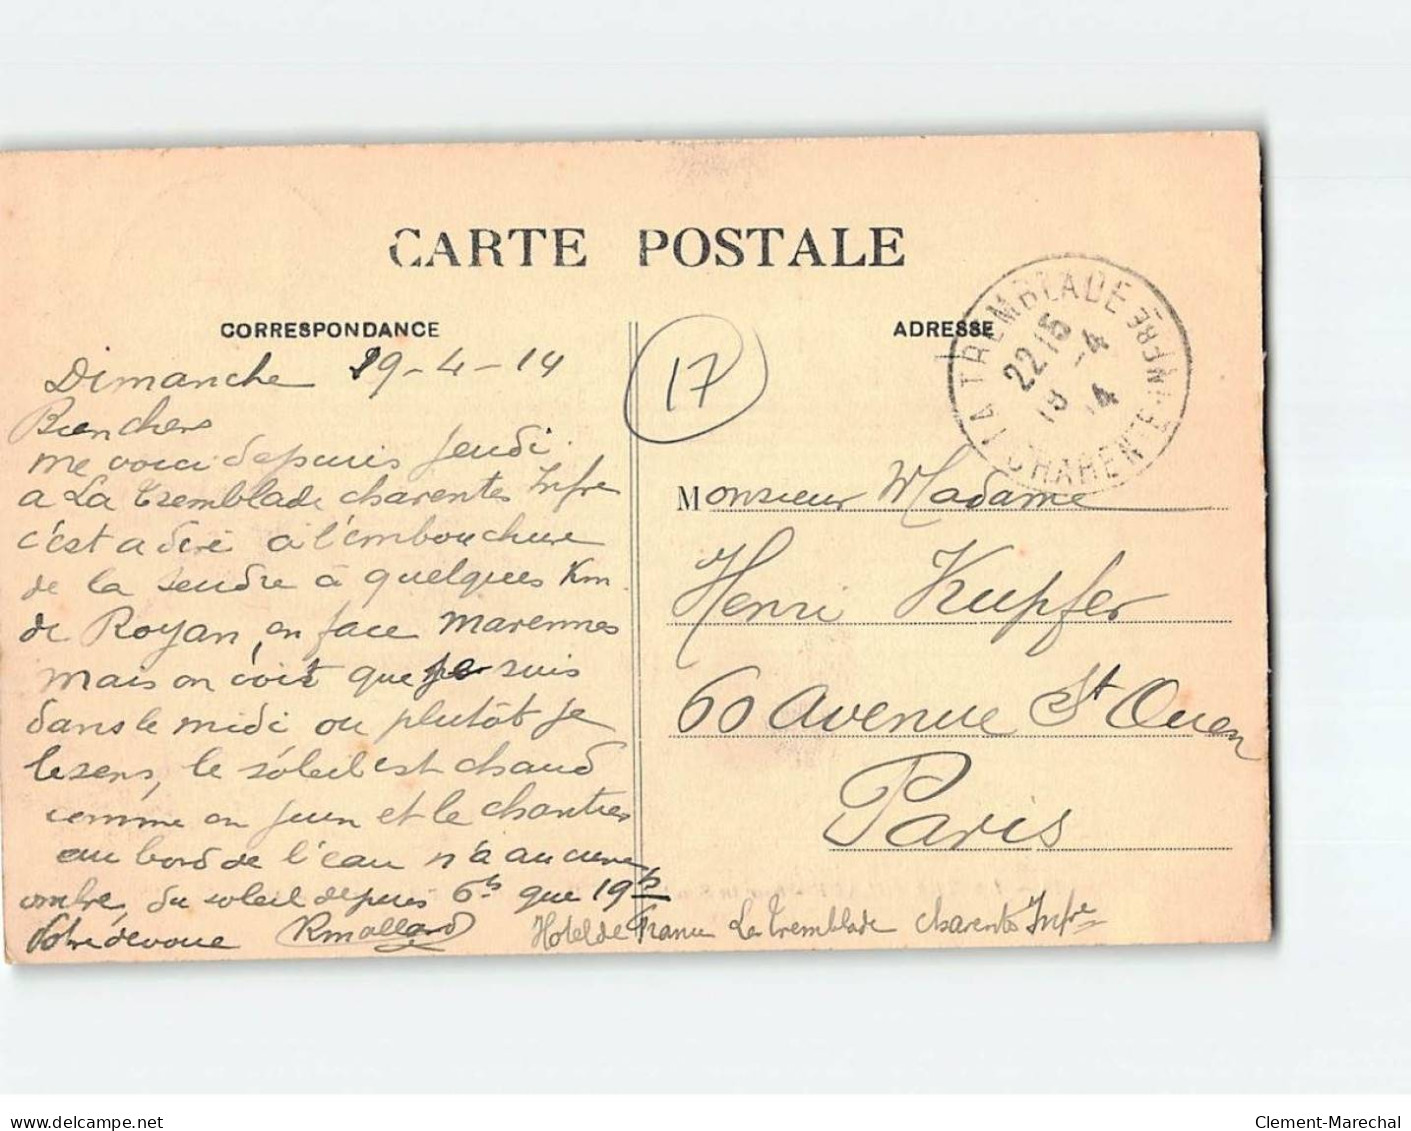 CARTE POSTALE
CORRESPONDANCE
ADRESSE
Dimanche 19-4-14
Bien chers
me voici depuis jeudi
a La Tremblade charentes Infre
c'est a dire a l'embouchure
de la Seudre à quelques Km
de Royan, en face marennes
mais on voit que je suis
dans le midi ou plutôt je
le sens, le soleil est chaud
comme en juin et le chantier
au bord de l'eau n'a aucune
ombre, du soleil depuis 6h que 19h
Votre dévoué RMallard
Hotel de France La Tremblade charentes Infre
17
LA TREMBLADE
22 15
19 -4
14
CHARENTE-INFRE
Monsieur Madame
Henri Kupfer
60 avenue St Ouen
Paris
www.delcampe.net
Clement-Marechal